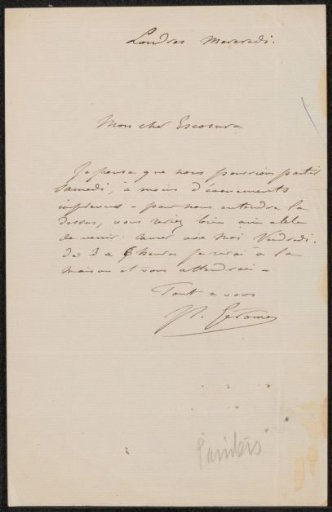 Londres Mercredi.
Mon cher Escosura
Je pense que nous pourrions partir
Samedi, à moins d'évenements
imprévus – pour nous entendre la
dessus, vous seriez bien aimable
de venir causer avec moi Vendredi.
De 3 a 6 heures je serai à la
maison et vous attendrai –
Tout a vous
Gérome